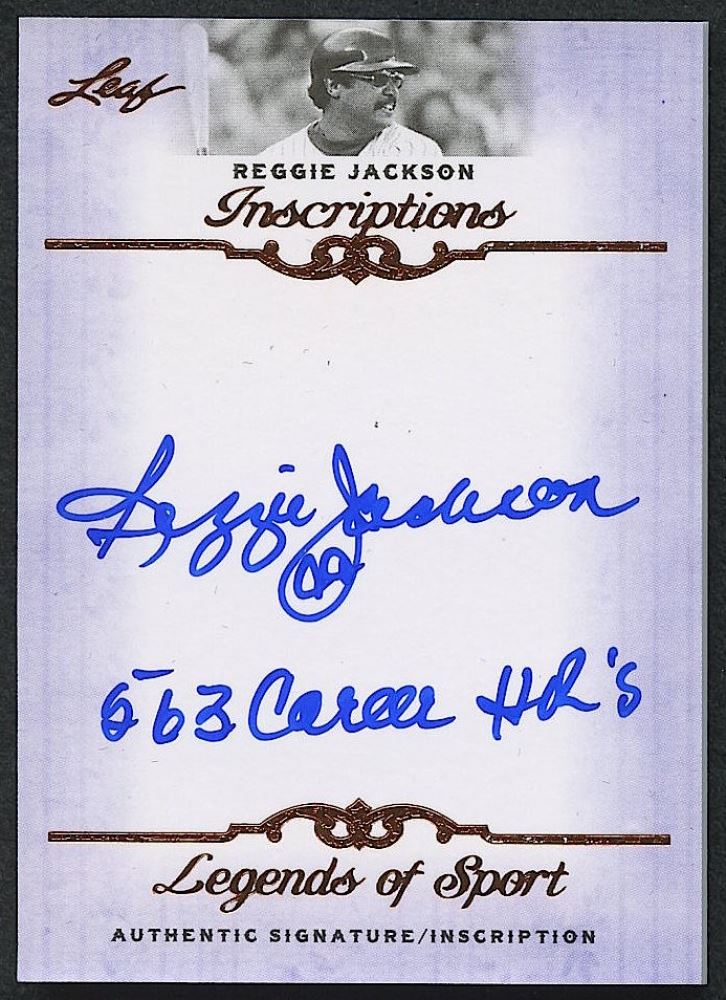 Leaf
REGGIE JACKSON
Inscriptions
Reggie Jackson
44
563 Career HR's
Legends of Sport
AUTHENTIC SIGNATURE/INSCRIPTION